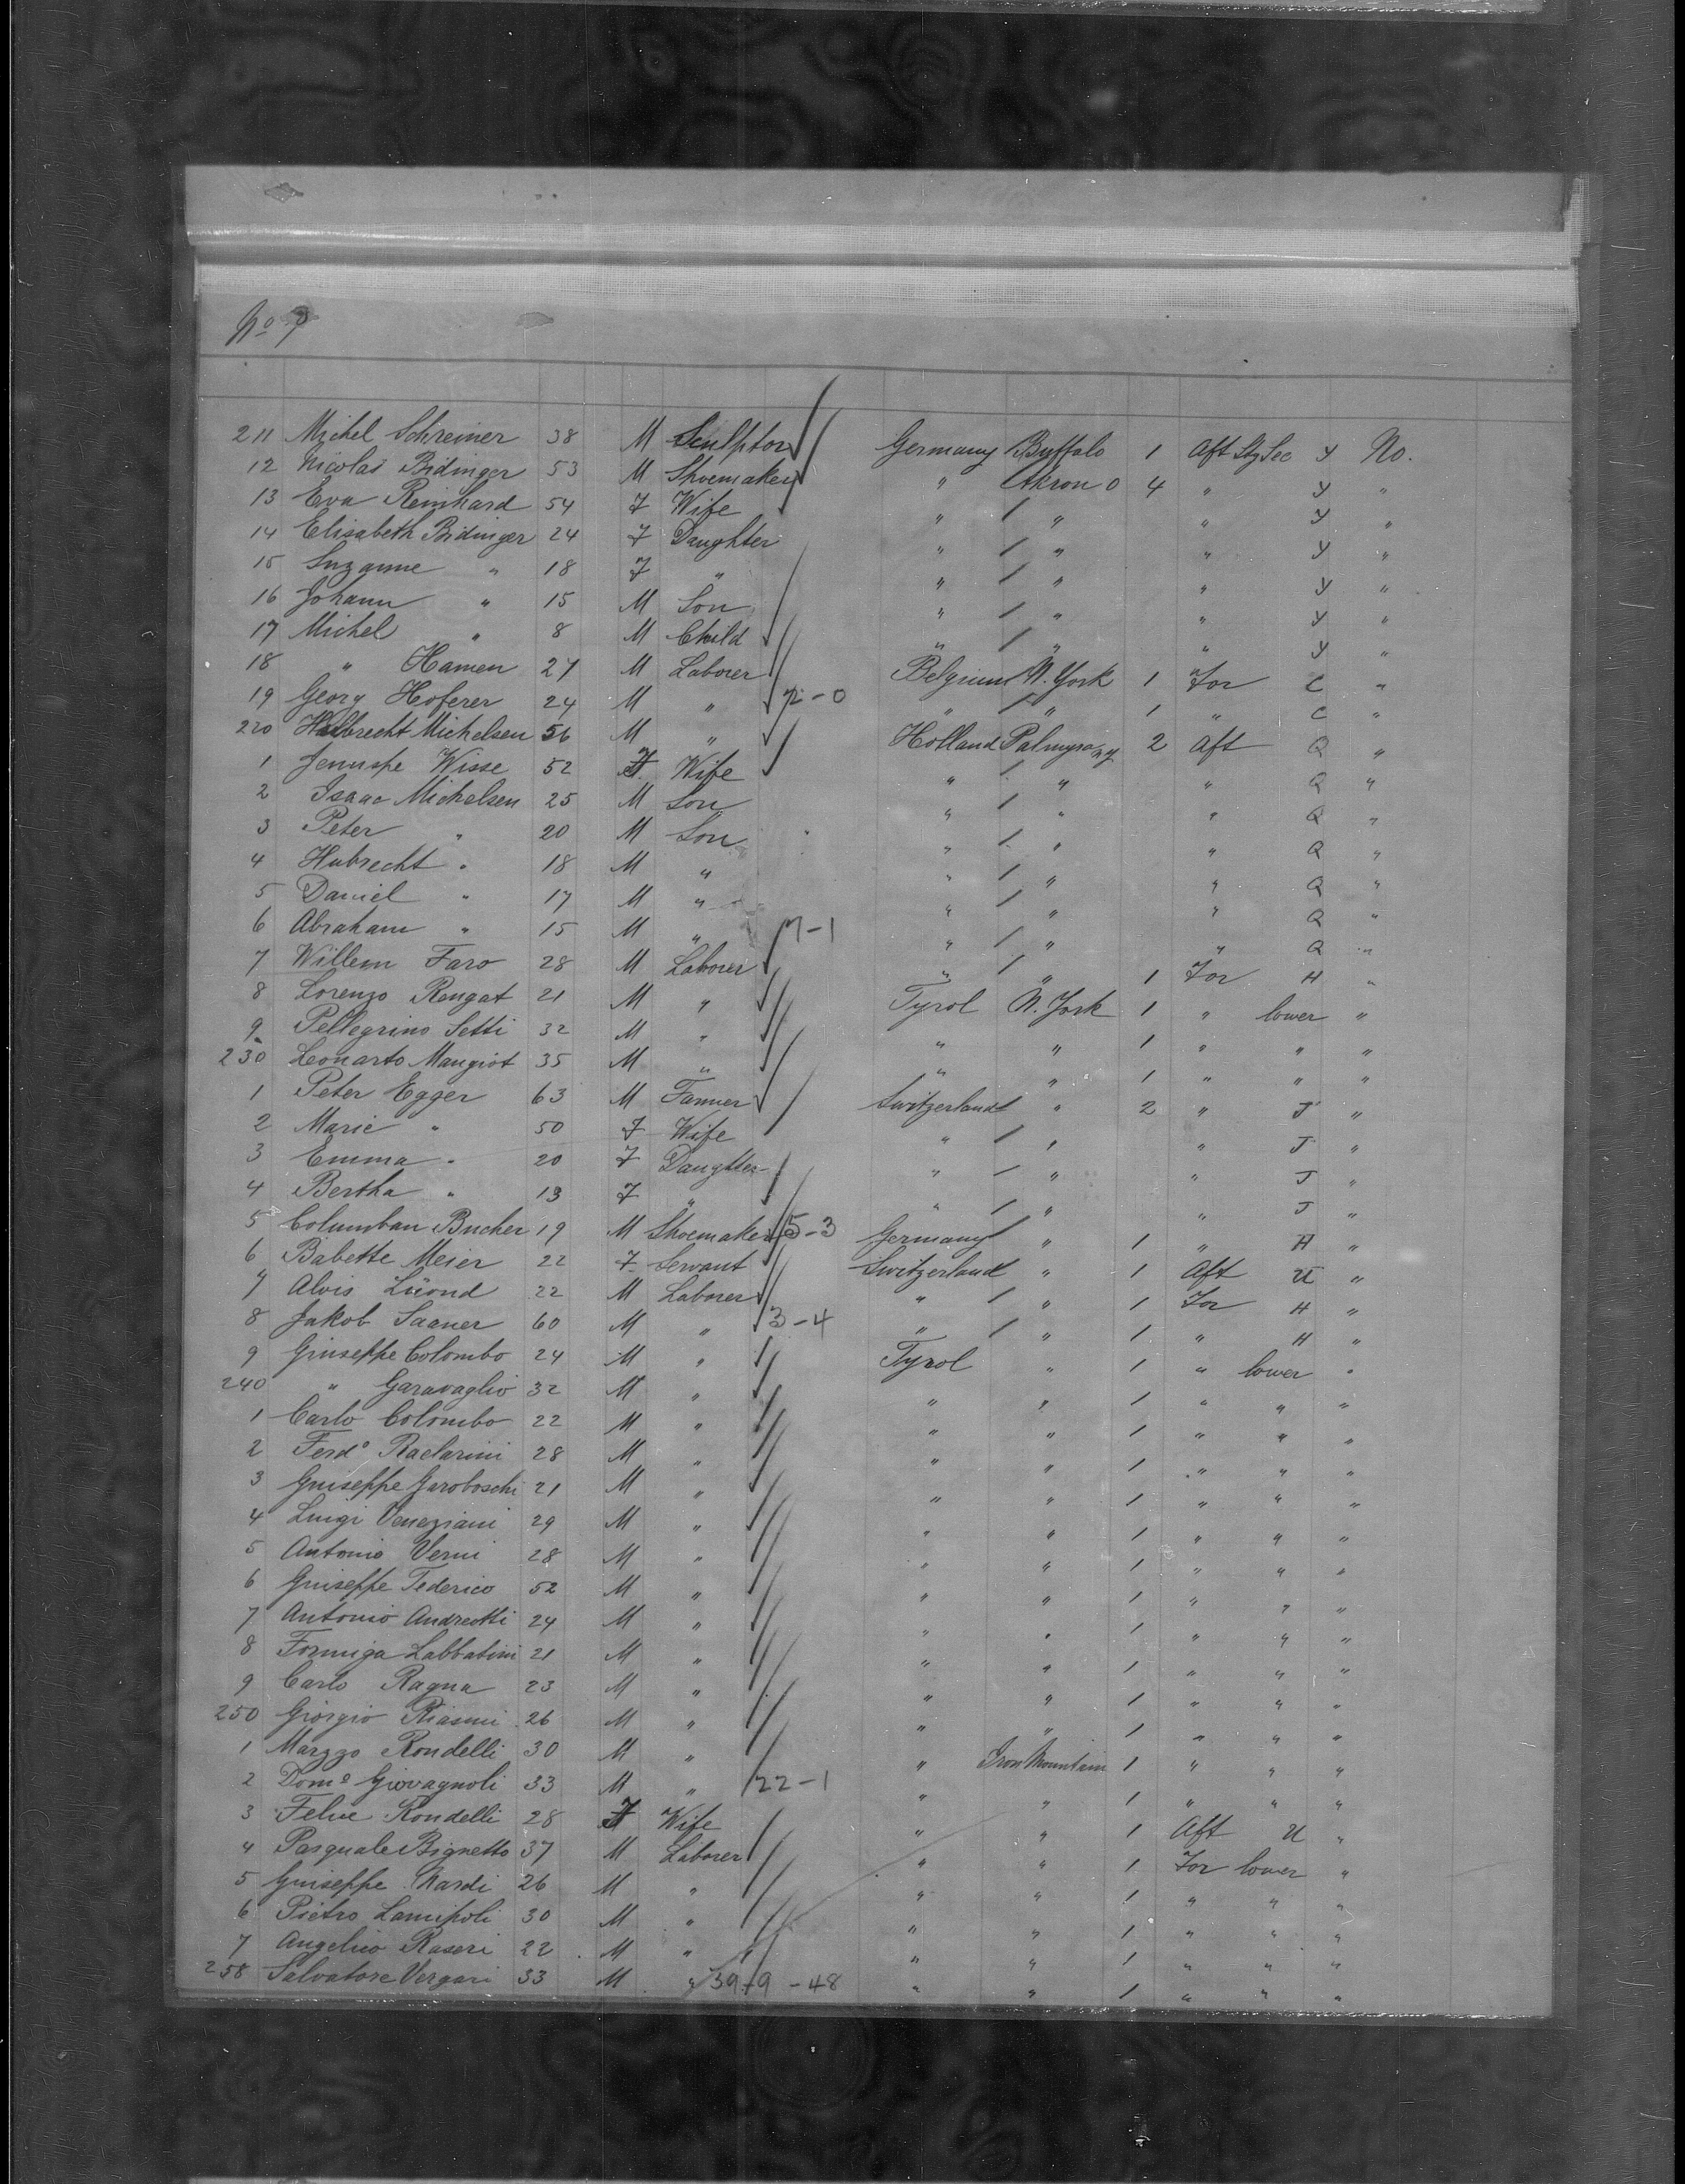 No 7
211 Michel Schreiner 38 M Sculptor Germany Buffalo 1 Aft Stg Sec Y No.
12 Nicolas Bidinger 53 M Shoemaker " Akron O 4 " Y "
13 Eva Reinhard 54 F Wife " / " " Y "
14 Elisabeth Bidinger 24 F Daughter " / " " Y "
15 Suzanne " 18 F " " / " " Y "
16 Johann " 15 M Son " / " " Y "
17 Michel " 8 M Child " / " " Y "
18 " Hamen 27 M Laborer Belgium N. York 1 For C "
19 Georg Hoferer 24 M " 2-0 " / " 1 " C "
220 Halbrecht Michelsen 56 M " Holland Palmyra NY 2 Aft Q "
1 Wisse 52 F Wife " / " " Q "
2 Isaac Michelsen 25 M Son " / " " Q "
3 Peter " 20 M Son " / " " Q "
4 Hubrecht " 18 M " " / " " Q "
5 Daniel " 17 M " " / " " Q "
6 Abraham " 15 M " 7-1 " / " " Q "
7 Willem Faro 28 M Laborer " / " 1 For H "
8 Lorenzo Rengat 21 M " Tyrol N. York 1 " lower "
9 Pellegrino Setti 32 M " " " 1 " " "
230 Leonarto Mangiot 35 M " " " 1 " " "
1 Peter Egger 63 M Farmer Switzerland " 2 " J "
2 Marie " 50 F Wife " / " " J "
3 Emma " 20 F Daughter " / " " J "
4 Bertha " 13 F " " / " " J "
5 Columban Bucher 19 M Shoemaker 5-3 Germany " 1 " H "
6 Babette Meier 22 F Servant Switzerland " 1 Aft U "
7 Alois Lüond 22 M Laborer " / " 1 For H "
8 Jakob Saaner 60 M " 3-4 " / " 1 " H "
9 Giuseppe Colombo 24 M " Tyrol " 1 " lower "
240 " Garavaglio 32 M " " " 1 " " "
1 Carlo Colombo 22 M " " " 1 " " "
2 Ferdo Raclarini 28 M " " " 1 " " "
3 Guiseppe Garoboschi 21 M " " " 1 " " "
4 Luigi Veneziani 29 M " " " 1 " " "
5 Antonio Verni 28 M " " " 1 " " "
6 Guiseppe Tederico 52 M " " " 1 " " "
7 Antonio Andreotti 24 M " " " 1 " " "
8 Formiga Labbatini 21 M " " " 1 " " "
9 Carlo Ragna 23 M " " " 1 " " "
250 Giorgio Riasmi 26 M " " " 1 " " "
1 Marzzo Rondelli 30 M " " Iron Mountain 1 " " "
2 Domo Giovagnoli 33 M " 22-1 " " 1 " " "
3 Felice Rondelli 28 F Wife " " 1 Aft U "
4 Pasquale Bignetto 37 M Laborer " " 1 For lower "
5 Guiseppe Nardi 26 M " " " 1 " " "
6 Pietro Lamipoli 30 M " " " 1 " " "
7 Angelico Raseri 22 M " " " 1 " " "
258 Salvatore Vergari 33 M " 39-9-48 " " 1 " " "